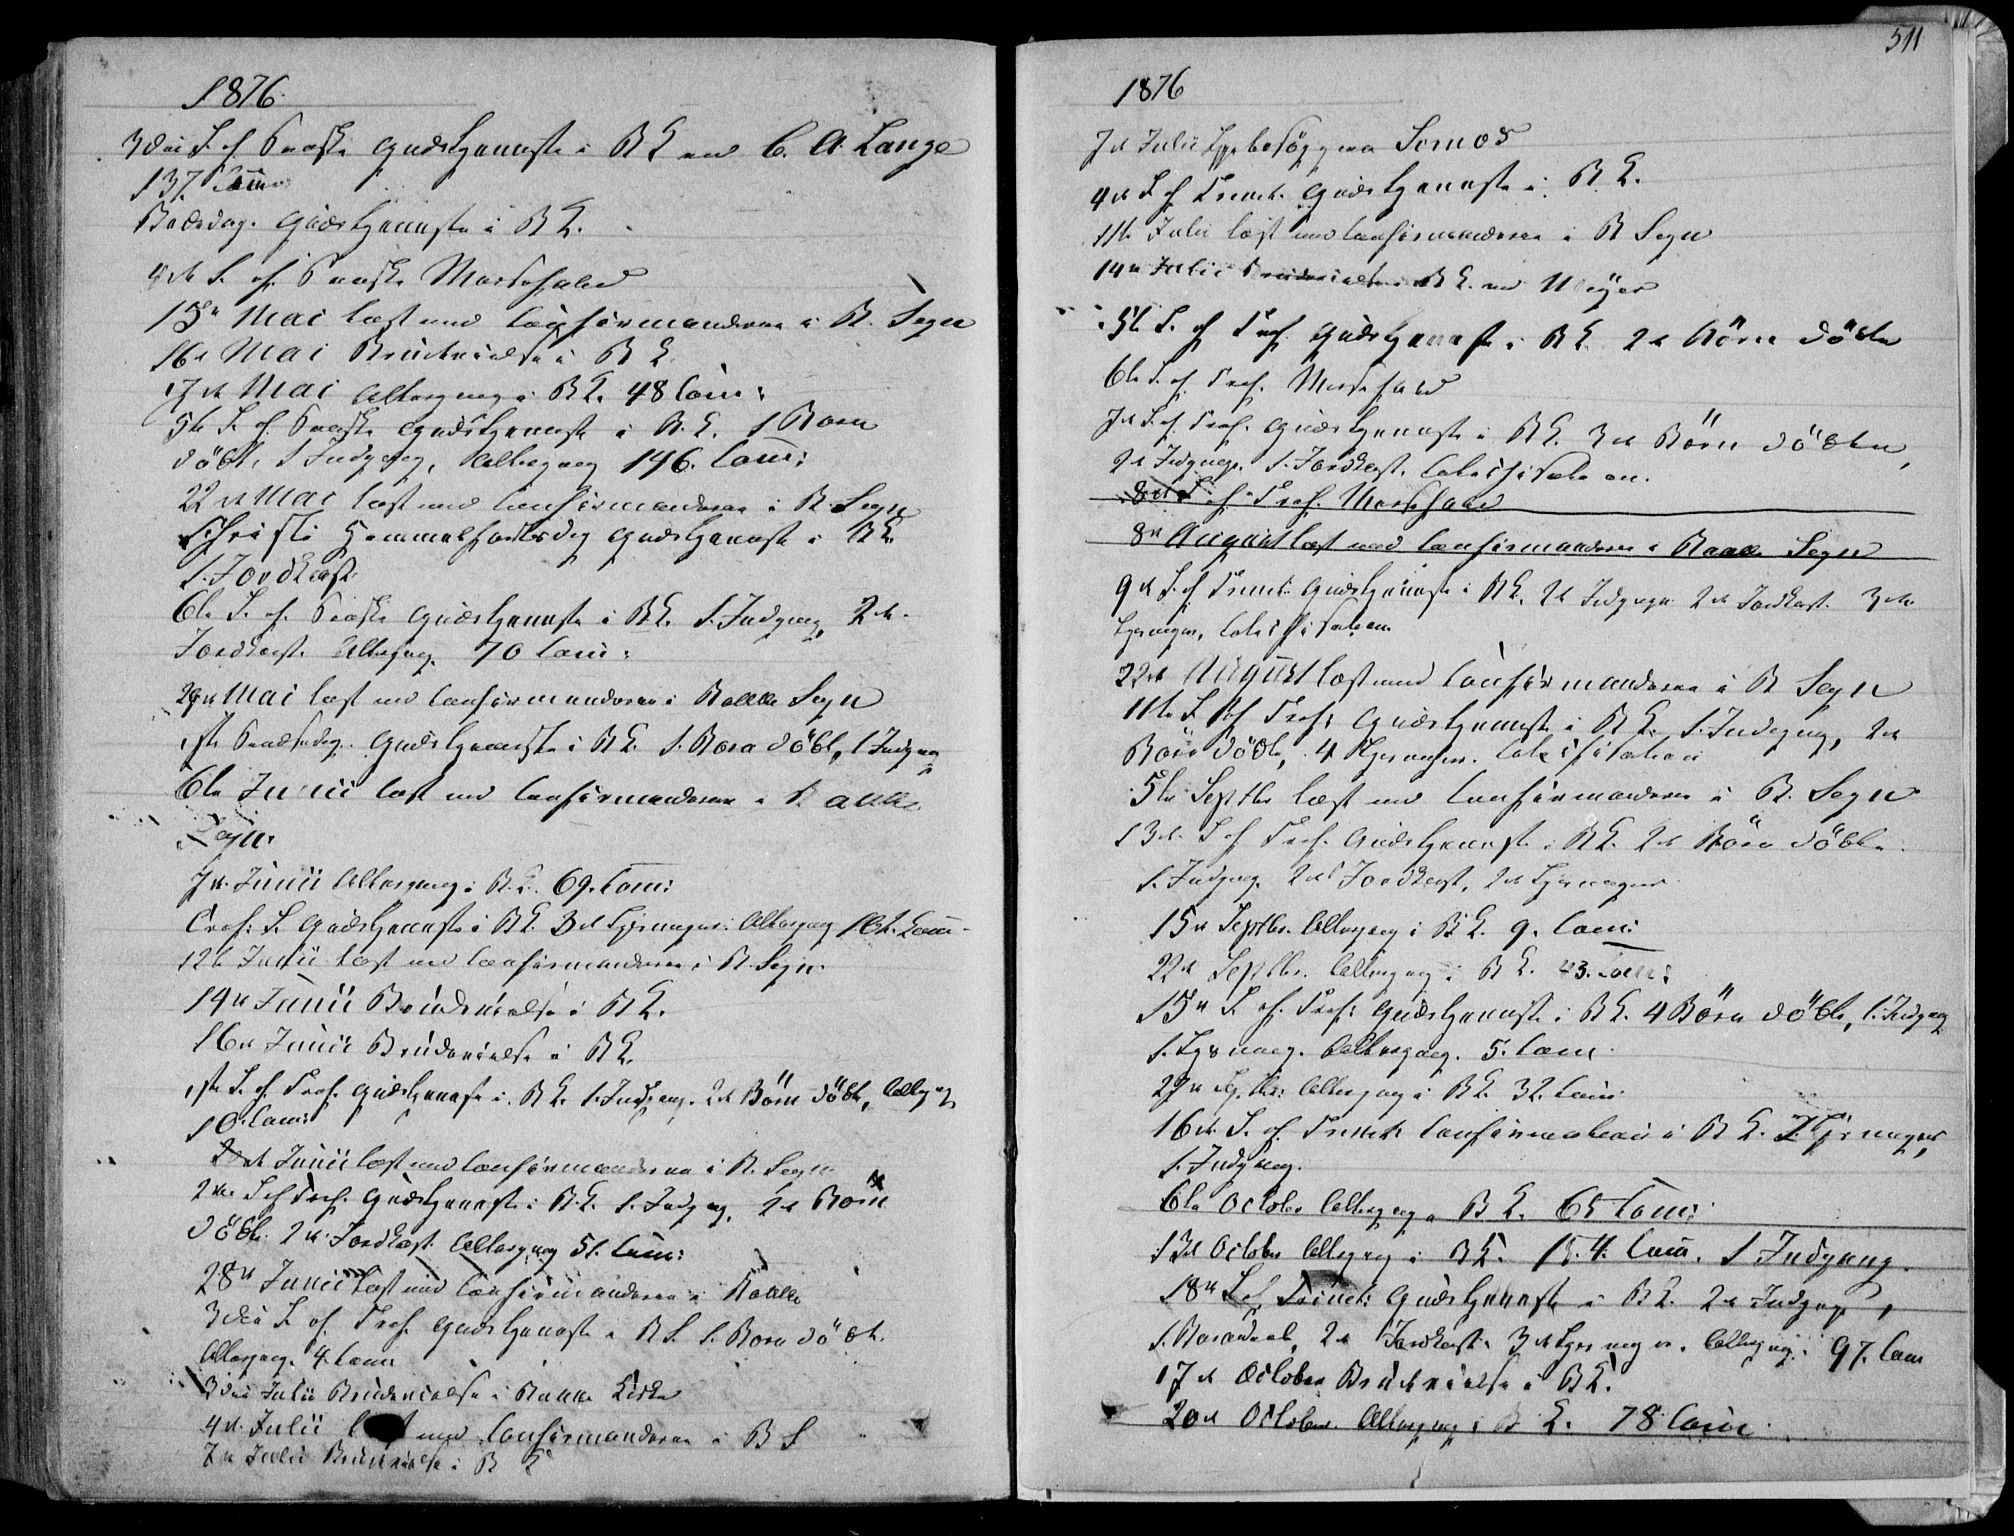 1876
3die S. ef. Paaske Gudstjeneste i R K ved C. A. Lange
137 Com:
Bededag. Gudstjeneste i R K.
4de S. ef. Paaske Messefald
15de Mai læst med Confirmanderne i R. Sogn
16de Mai Brudevielse i R K
17de Mai Altergang i R K. 48 Com:
5te S. ef. Paaske Gudstjeneste i R. K. 1 Barn
döbt, 1 Indgang, Altergang 146. Com:
22de Mai læst med Confirmanderne i R. Sogn
Christi Himmelfartsdag Gudstjeneste i R K.
1. Jordkast
6te S. ef. Paaske Gudstjeneste i R K. 1. Indgang, 2de
Jordkast. Altergang. 70 Com:
29de Mai læst med Confirmanderne i Sogn
1ste Pindsedag. Gudstjeneste i R K. 1. Barn döbt, 1 Indgang
6te Junii læst med Confirmanderne i
Sogn.
7de Junii Altergang i R. K. 69. Com:
Tref: S. Gudstjeneste i R K. 3de Altergang Com
12te Junii læst med Confirmanderne i R. Sogn.
14de Junii Brudevielse i R K.
16de Junii Brudevielse i R K.
1ste S. ef. Tref. Gudstjeneste i R K. 1. Indgang. 2de Börn döbt, Altergang
10 Com:
Junii læst med Confirmanderne i R. Sogn
2den S ef Tref. Gudstjeneste i R. K. 1. Indgang, 2de Börn
döbt. 2de Jordkast. Altergang 51. Com:
28de Junii læst med Confirmanderne i
3die S. ef. Tref. Gudstjeneste i R K. 1. Barn döbt.
Altergang. 4. Com:
3die Julii Brudevielse i Kirke
4de Julii læst med Confirmanderne i R S
7de Julii Brudevielse i R K
511
1876
7de Julii
4de S. ef Trinit. Gudstjeneste i R. K.
11te Julii læst med Confirmanderne i R Sogn
14de Julii Brudevielse i R K. ved Meyer
5te S. ef Tref. Gudstjeneste i R K. 2de Börn döbte
6te S. ef. Tref. Messefald
7de S. ef. Tref. Gudstjeneste i R K. 3de Börn döbte,
2de Indgange. 1. Jordkast. Catechisation.
8de S. ef. Tref. Messefald
8de August læst med Confirmanderne i Sogn
9de S. ef Trinit. Gudstjeneste i R K. 2de Indgange 2de Jordkast. 3de
Catechisation
22de August læst med Confirmanderne i R Sogn
11te S. ef Tref: Gudstjeneste i R K. 1. Indgang, 2de
Börn döbte, 4 Catechisation
5te Septbr læst med Confirmanderne i R. Sogn
13de S ef Tref. Gudstjeneste i R K. 2de Börn döbte
1. Indgang. 2de Jordkast, 2de
15de Septbr. Altergang i R K. 9. Com:
22de Septbr. Altergang i R K. 43. Com:
15de S. ef. Tref: Gudstjeneste i R K. 4 Börn döbte, 1. Indgang
1. Altergang. 5. Com:
29de Septbr: Altergang i R K. 32. Com:
16de S. ef. Trinit. Confirmation i R K.
1. Indgang.
6te October Altergang i R K. 65 Com:
13de October Altergang i R K. 154. Com. 1 Indgang.
18de S. ef Trinit: Gudstjeneste i R K. 2de Indgange,
1. Barnedaab, 2de Jordkast. 3de Altergang: 97. Com
17de October Brudevielse i R K.
20de October. Altergang i R K. 78 Com: